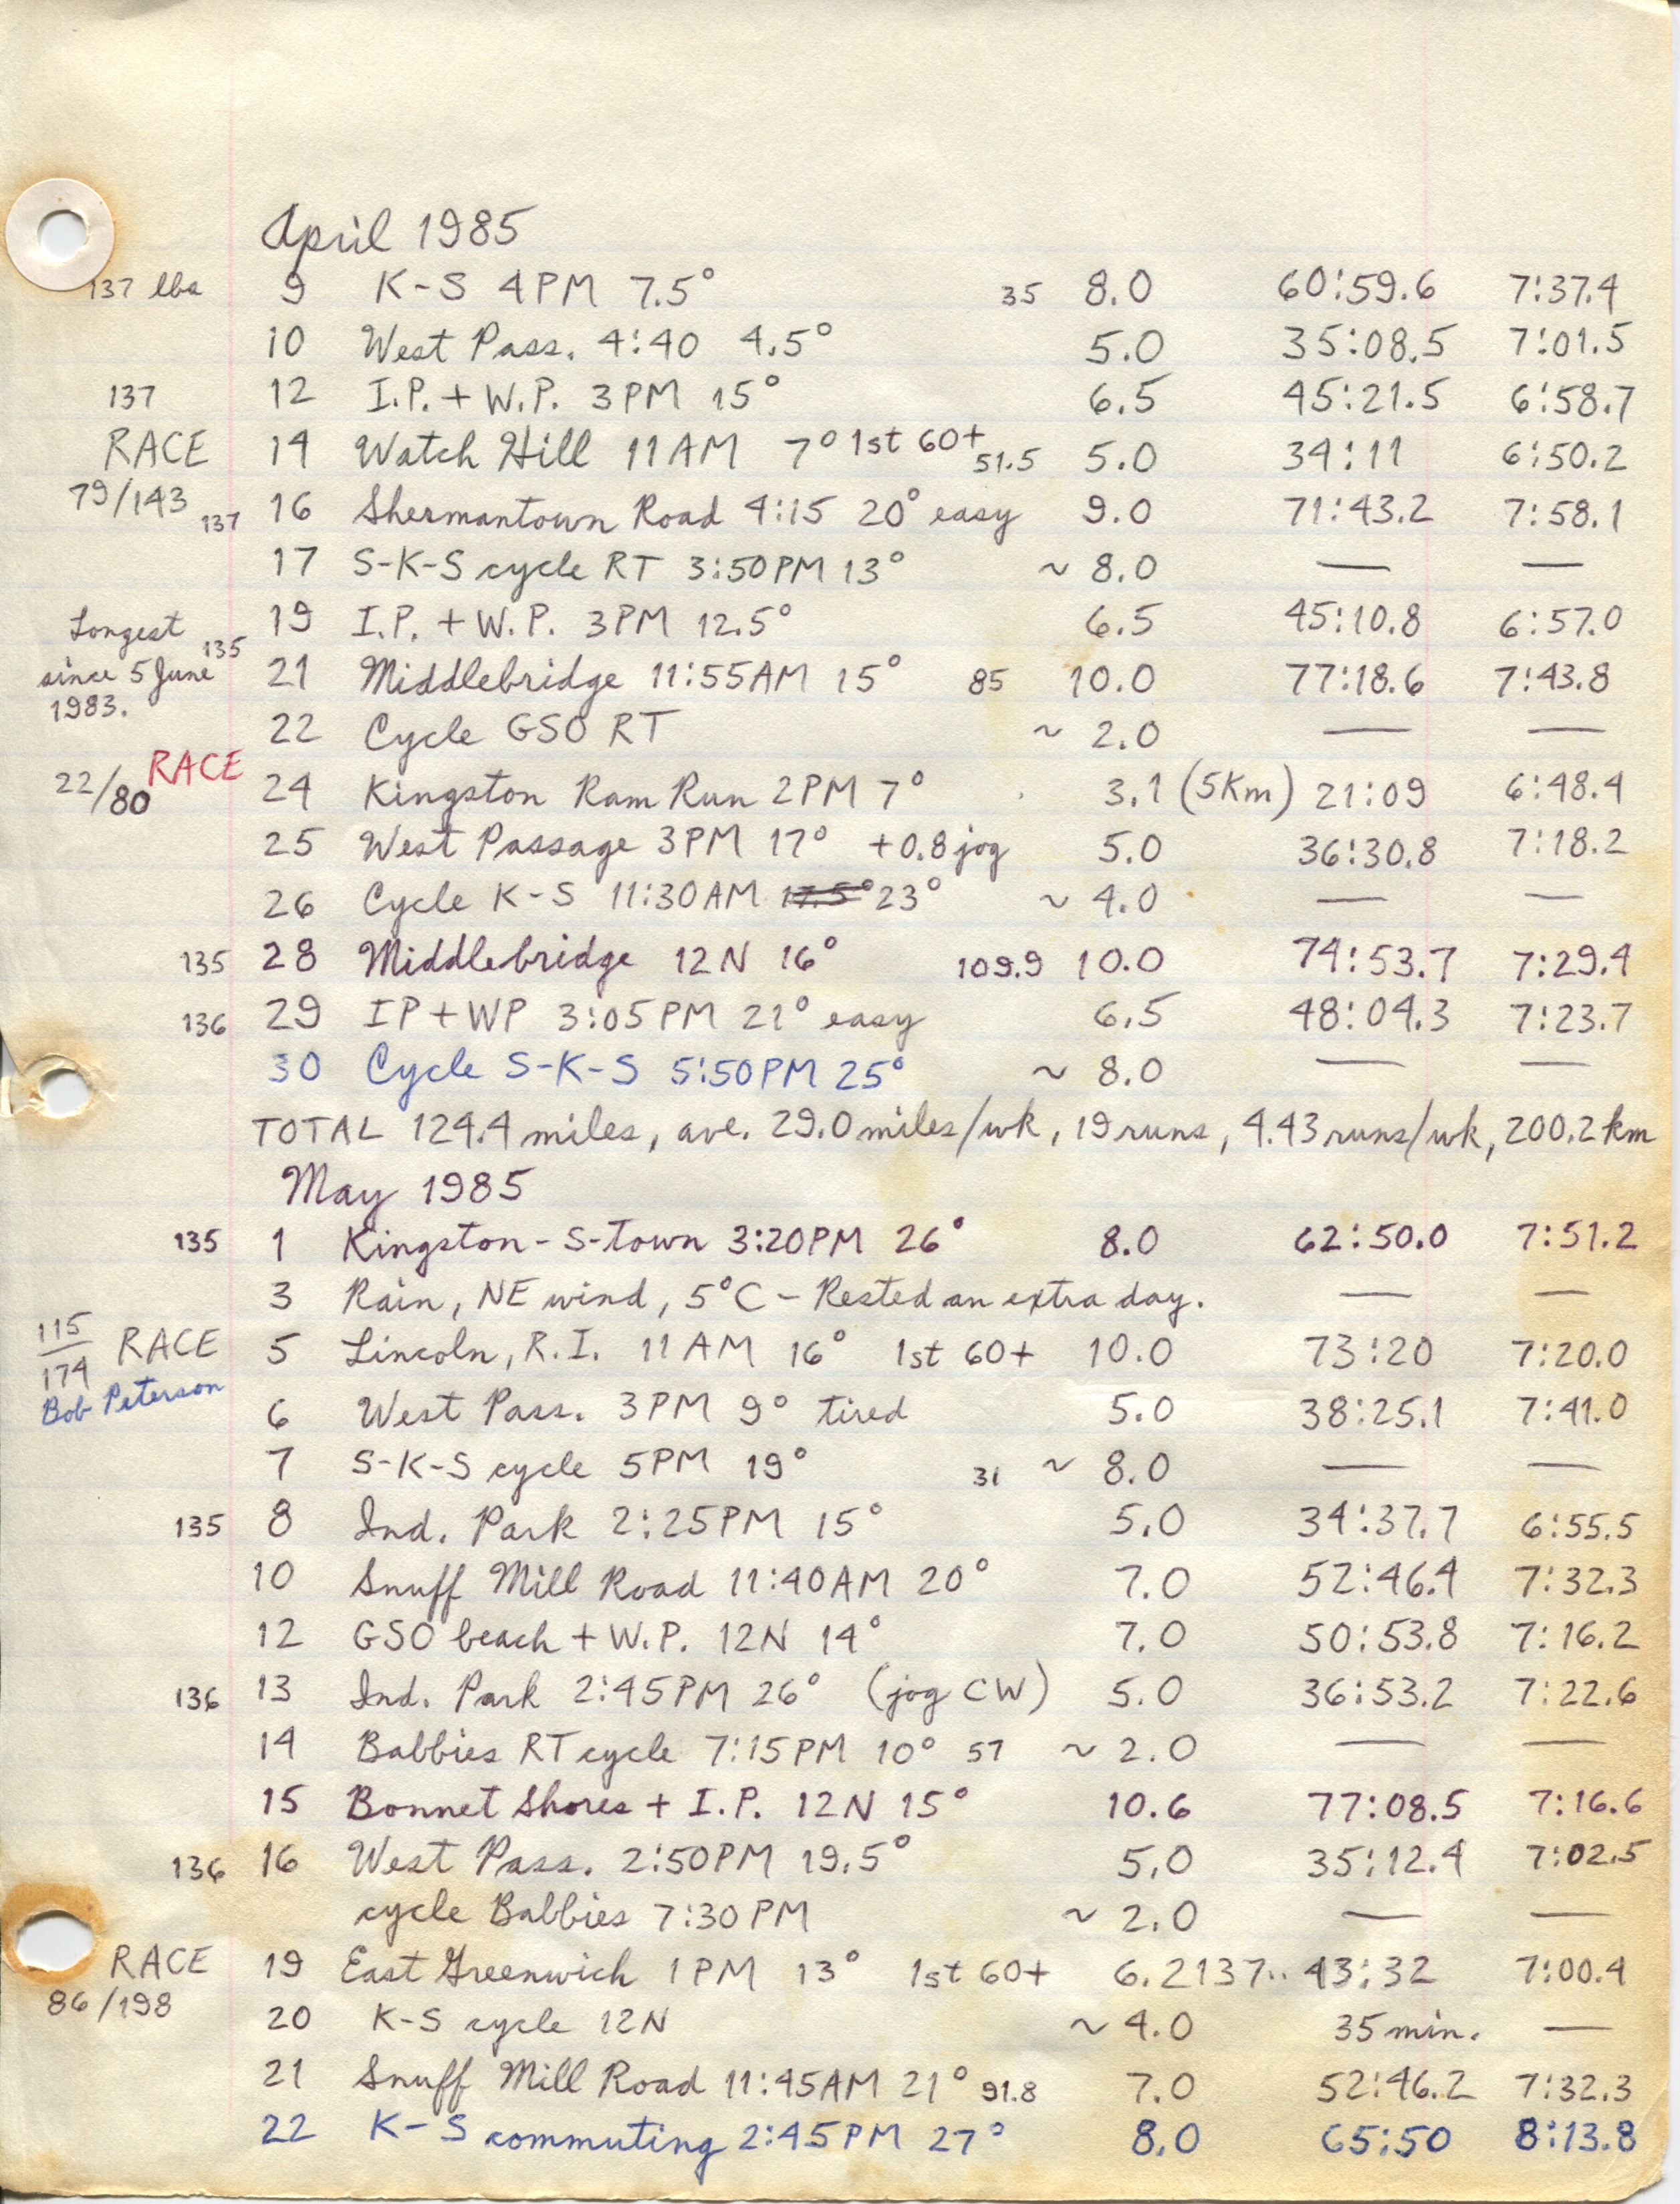 April 1985
137 lbs 9 K-S 4PM 7.5° 35 8.0 60:59.6 7:37.4
10 West Pass. 4:40 4.5° 5.0 35:08.5 7:01.5
137 12 I.P. + W.P. 3PM 15° 6.5 45:21.5 6:58.7
RACE 14 Watch Hill 11AM 7° 1st 60+ 51.5 5.0 34:11 6:50.2
79/143 137 16 Shermantown Road 4:15 20° easy 9.0 71:43.2 7:58.1
17 S-K-S cycle RT 3:50PM 13° ~ 8.0 — —
Longest 135 19 I.P. + W.P. 3PM 12.5° 6.5 45:10.8 6:57.0
since 5 June 21 Middlebridge 11:55AM 15° 85 10.0 77:18.6 7:43.8
1983. 22 Cycle GSO RT ~ 2.0 — —
RACE
22/80 24 Kingston Ram Run 2PM 7° 3.1 (5Km) 21:09 6:48.4
25 West Passage 3PM 17° +0.8 jog 5.0 36:30.8 7:18.2
26 Cycle K-S 11:30AM 17.5° 23° ~ 4.0 — —
135 28 Middlebridge 12N 16° 109.9 10.0 74:53.7 7:29.4
136 29 IP + WP 3:05PM 21° easy 6.5 48:04.3 7:23.7
30 Cycle S-K-S 5:50PM 25° ~ 8.0 — —
TOTAL 124.4 miles, ave. 29.0 miles/wk, 19 runs, 4.43 runs/wk, 200.2 km
May 1985
135 1 Kingston-S-Town 3:20PM 26° 8.0 62:50.0 7:51.2
3 Rain, NE wind, 5°C - Rested an extra day. — —
115/174 RACE 5 Lincoln, R.I. 11AM 16° 1st 60+ 10.0 73:20 7:20.0
Bob Peterson 6 West Pass. 3PM 9° tired 5.0 38:25.1 7:41.0
7 S-K-S cycle 5PM 19° 31 ~ 8.0 — —
135 8 Ind. Park 2:25PM 15° 5.0 34:37.7 6:55.5
10 Snuff Mill Road 11:40AM 20° 7.0 52:46.4 7:32.3
12 GSO beach + W.P. 12N 14° 7.0 50:53.8 7:16.2
136 13 Ind. Park 2:45PM 26° (jog CW) 5.0 36:53.2 7:22.6
14 Babbies RT cycle 7:15PM 10° 57 ~ 2.0 — —
15 Bonnet Shores + I.P. 12N 15° 10.6 77:08.5 7:16.6
136 16 West Pass. 2:50PM 19.5° 5.0 35:12.4 7:02.5
cycle Babbies 7:30PM ~ 2.0 — —
RACE 19 East Greenwich 1PM 13° 1st 60+ 6.2137.. 43:32 7:00.4
86/198 20 K-S cycle 12N ~ 4.0 35 min. —
21 Snuff Mill Road 11:45AM 21° 91.8 7.0 52:46.2 7:32.3
22 K-S commuting 2:45PM 27° 8.0 65:50 8:13.8